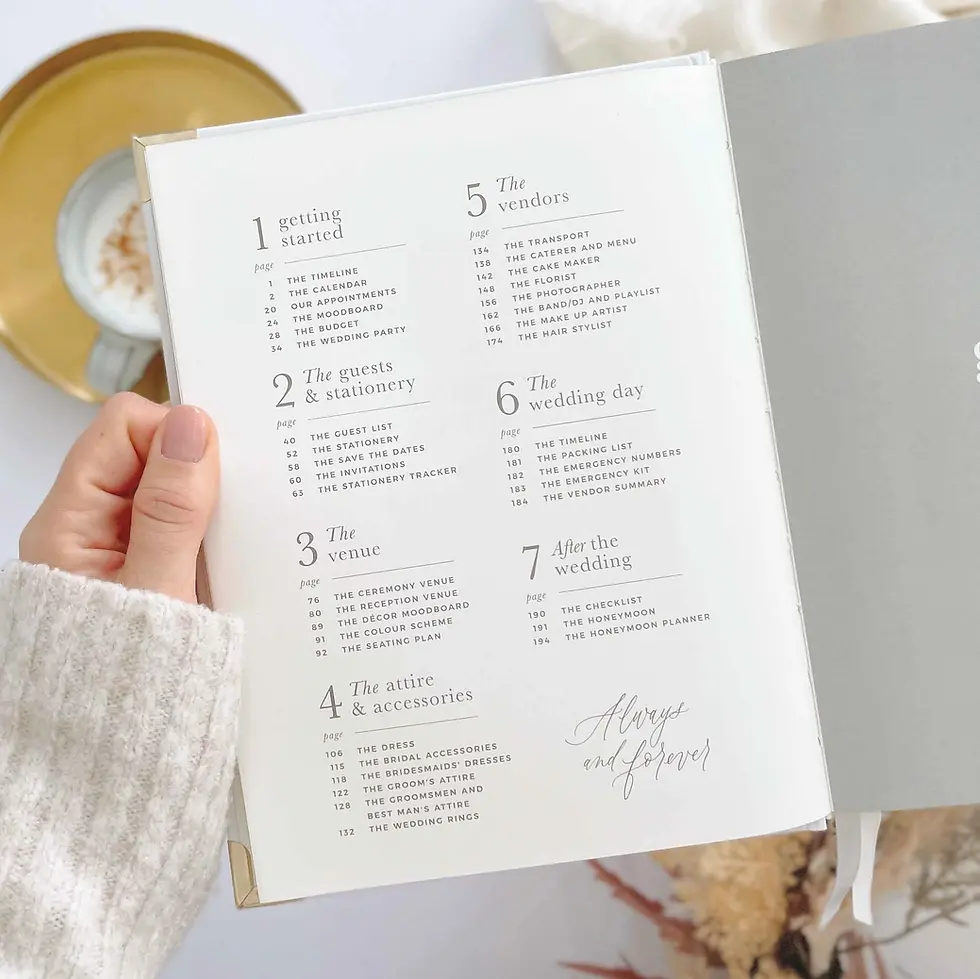 1 getting
started
page
1 THE TIMELINE
2 THE CALENDAR
20 OUR APPOINTMENTS
24 THE MOODBOARD
28 THE BUDGET
34 THE WEDDING PARTY
2 The guests
& stationery
page
40 THE GUEST LIST
52 THE STATIONERY
58 THE SAVE THE DATES
60 THE INVITATIONS
63 THE STATIONERY TRACKER
3 The
venue
page
76 THE CEREMONY VENUE
80 THE RECEPTION VENUE
89 THE DÉCOR MOODBOARD
91 THE COLOUR SCHEME
92 THE SEATING PLAN
4 The attire
& accessories
page
106 THE DRESS
115 THE BRIDAL ACCESSORIES
118 THE BRIDESMAIDS' DRESSES
122 THE GROOM'S ATTIRE
128 THE GROOMSMEN AND
BEST MAN'S ATTIRE
132 THE WEDDING RINGS
5 The
vendors
page
134 THE TRANSPORT
138 THE CATERER AND MENU
142 THE CAKE MAKER
148 THE FLORIST
156 THE PHOTOGRAPHER
162 THE BAND/DJ AND PLAYLIST
166 THE MAKE UP ARTIST
174 THE HAIR STYLIST
6 The
wedding day
page
180 THE TIMELINE
181 THE PACKING LIST
182 THE EMERGENCY NUMBERS
183 THE EMERGENCY KIT
184 THE VENDOR SUMMARY
7 After the
wedding
page
190 THE CHECKLIST
191 THE HONEYMOON
194 THE HONEYMOON PLANNER
Always
and forever